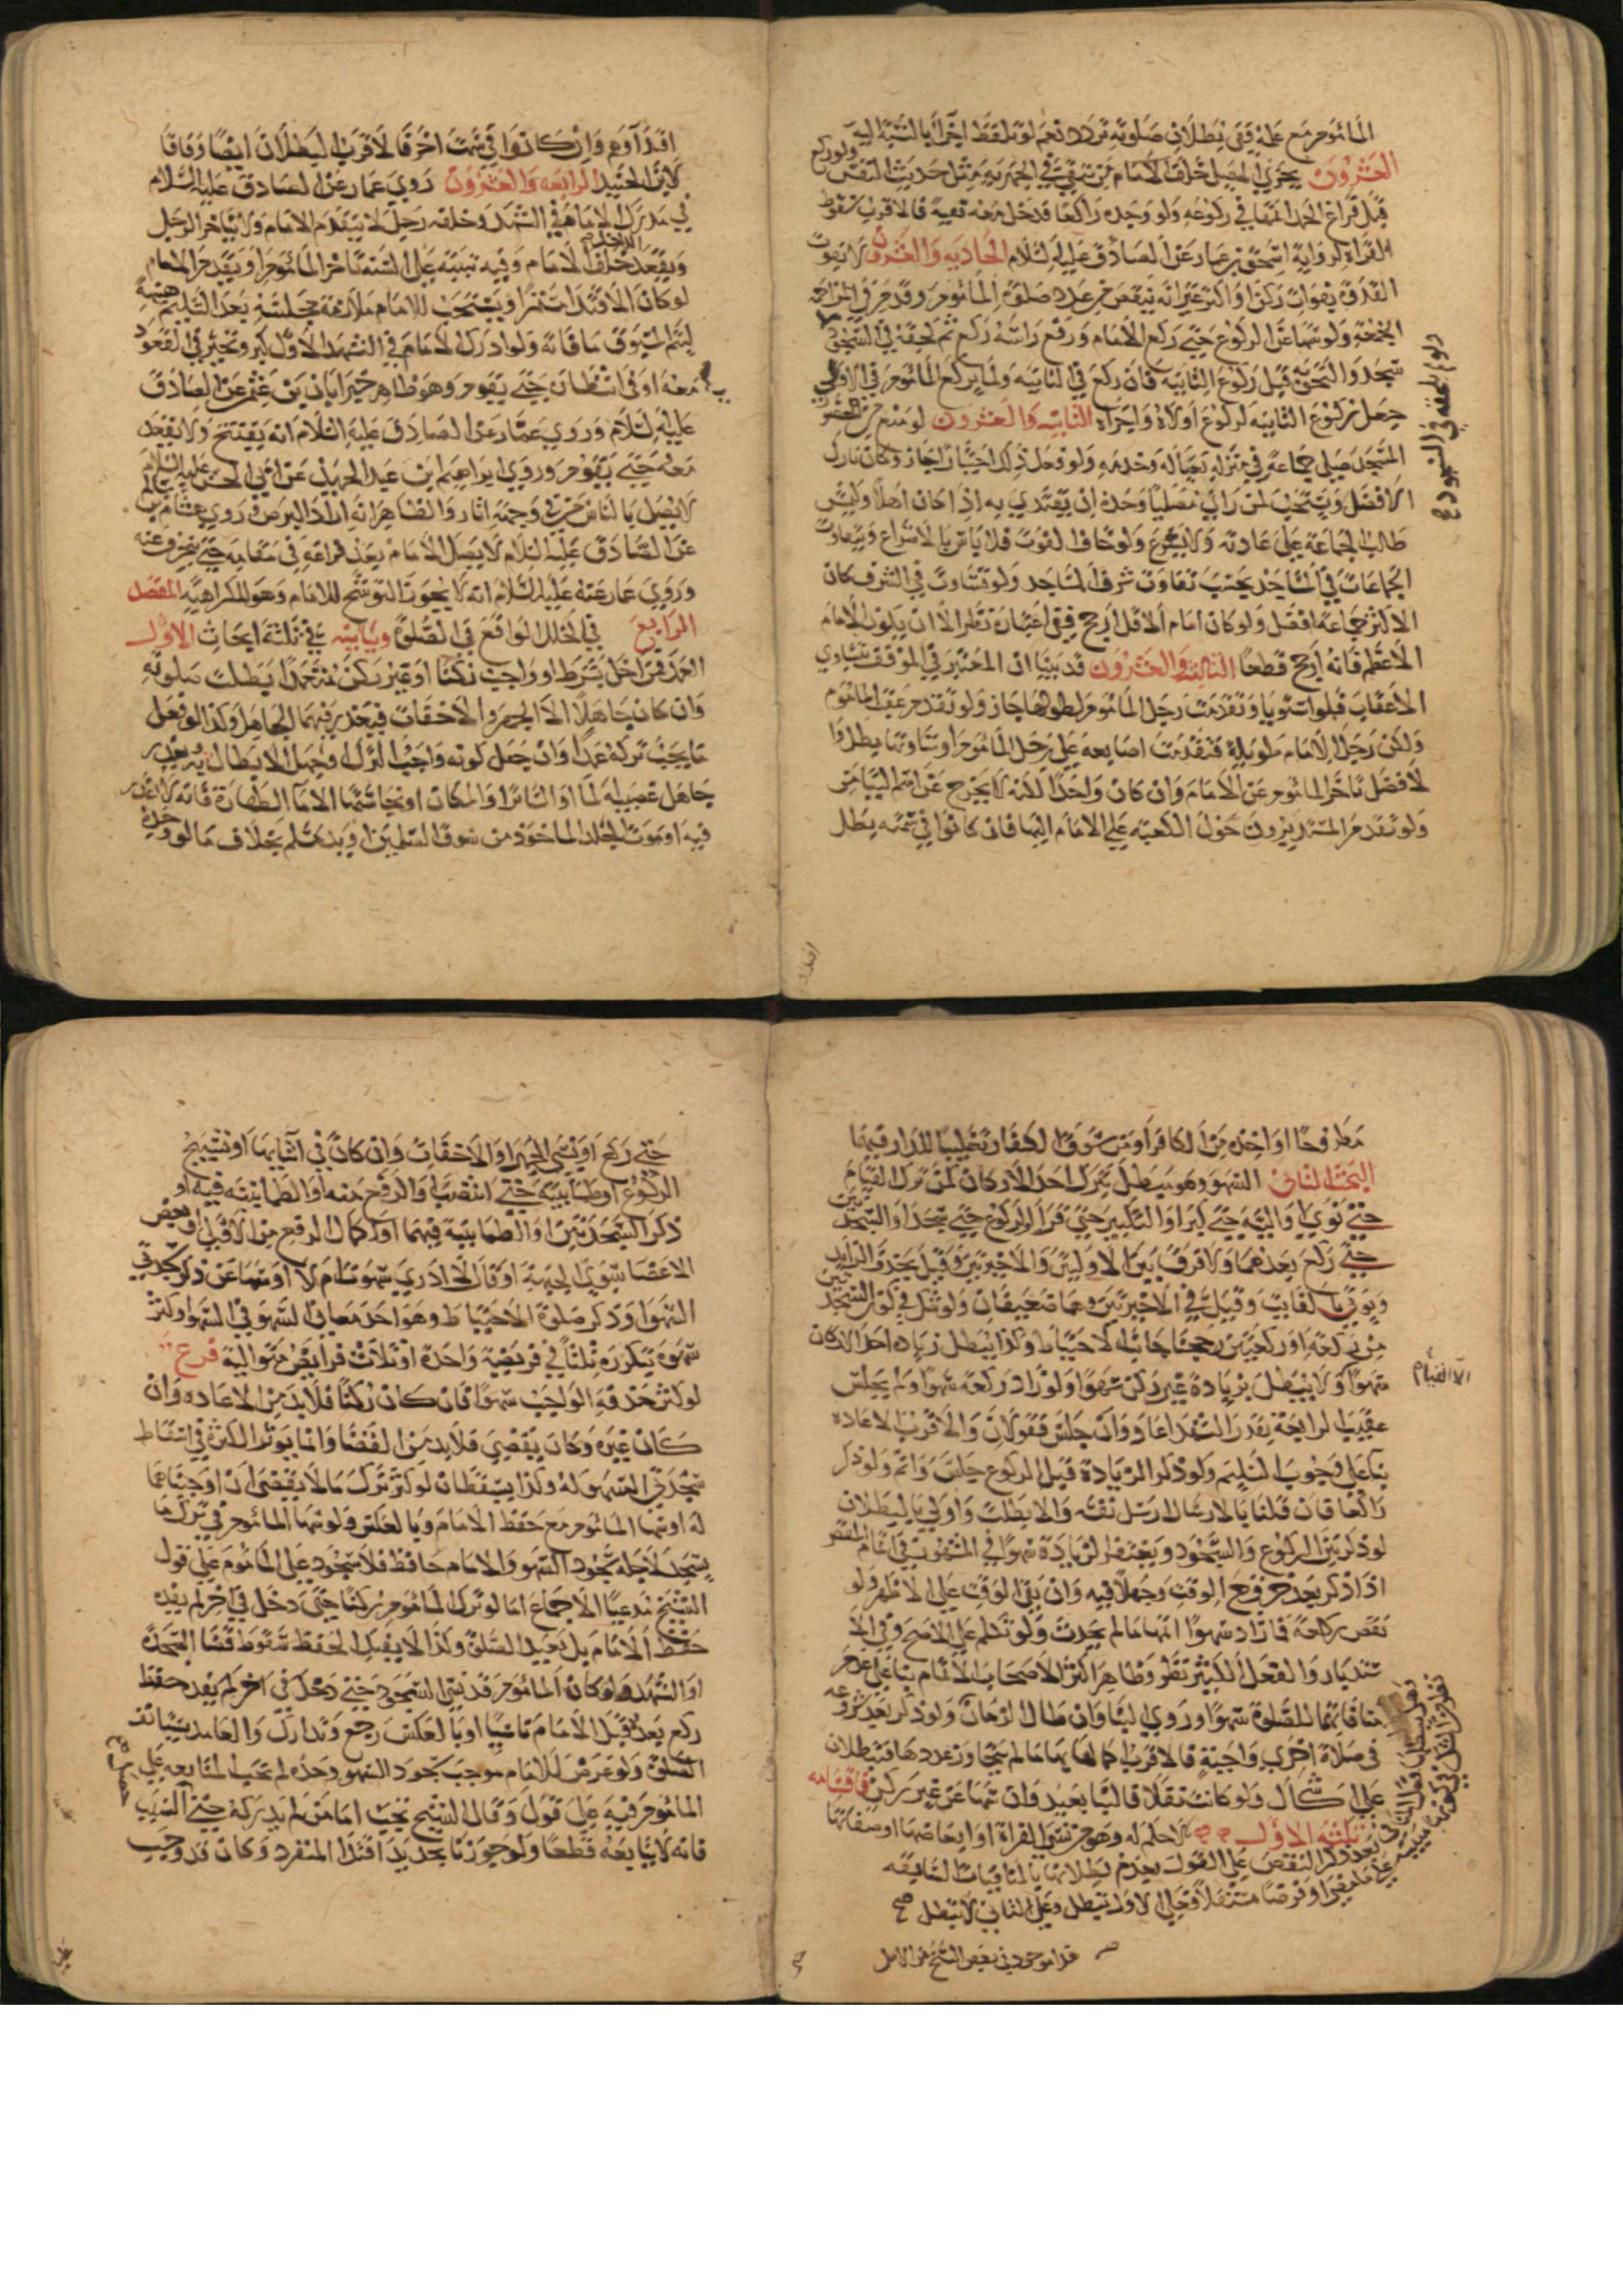 المأموم مع علمه ففي بطلان صلوته تردد نعم لو تلفظ اخر بالنسبة اليه
العشرون يجزي المصلي خلف الامام تقية في الجهرية مثل حديث النفس ولو ركع
قبل فراغ الحمد اتمها في ركوعه ولو وجده راكعا فدخل معه تقية فالاقرب سقوط
القراة لرواية اسحق بن عمار عن الصادق عليه السلام الحاديه والعشرون لا يفوت
القدوة بفوات ركن او اكثر غير انه ينقص من عدد صلوة المأموم وقد مر في المزاحمة
الجمعة ولو سها عن الركوع حتى ركع الامام ورفع راسه ركع ثم لحقه في السجود
سجد والتحق قبل ركوع الثانية فان ركع في الثانية ولما يركع المأموم في الاولى
جعل ركوع الثانية لركوع اولاه واجزاه الثانية والعشرون لو منع من الحضور
المسجد صلى جماعة في منزله بعياله وخدمه ولو فعل ذلك اختيارا جاز وكان تارك
الافضل ويستحب لمن راى مصليا وحده ان يقتدي به اذا كان اهلا وليمش
طالب الجماعة على عادته ولا يسرع ولو خاف الفوت فلا باس بالاسراع ويتفاوت
الجماعات في المساجد بحسب تفاوت شرف المساجد ولو تساوت في الشرف كان
الاكثر جماعة افضل ولو كان امام الاقل ارجح ففي اعتباره نظر الا ان يكون الامام
الاعظم فانه ارجح قطعا الثالثة والعشرون قد بينا ان المعتبر في الموقف تساوي
الاعقاب فلو استويا وتقدمت رجل المأموم لطولها جاز ولو تقدم عقب المأموم
ولكن رجل الامام طويلة فتقدمت اصابعه على رجل المأموم او ساوتها بطل
الافضل تاخر المأموم عن الامام وان كان واحدا لكنه لا يخرج عن اسم التيامن
ولو تقدم المستديرون حول الكعبة على الامام اليها فان كانوا في سمته بطل
اقتداوهم وان كانوا في سمت اخر فالاقرب البطلان ايضا وفاقا
لابن الجنيد الرابعه والعشرون روي عمار عن الصادق عليه السلام
في مدرك الامام في التشهد وخلفه رجل لا يتقدم الامام ولا يتاخر الرجل
ويقعد الداخل خلف الامام وفيه تنبيه على السنة تاخر المأموم او يتقدم الامام
لو كان الاقتدا مستمرا ويستحب للامام ملازمة مجلسه بعد التسليم هنيهة
ليتم المسبوق ما فاته ولو ادرك الامام في التشهد الاول كبر وتخير في القعود
معه او في انتظاره حتى يقوم وهو ظاهر خبر ابان بن عثمن عن الصادق
عليه السلام وروي عمار عن الصادق عليه السلام انه يفتتح ولا يقعد
معه حتى يقوم وروي ابراهيم بن عبد الحميد عن ابي الحسن عليه السلام
لا يصلي بالناس من في وجهه اثار والظاهر انه اراد البرص وروي هشام بن سالم
عن الصادق عليه السلام لا يصل الامام بعد فراغه في مقامه حتى ينحرف عنه
وروي عمار عنه عليه السلام انه لا يجوز التوشح للامام وهو للكراهية الفصل
الرابع في الخلل الواقع في الصلوة وبيانه في ثلثة ابحاث الاول
العمد فمن اخل بشرط او واجب ركنا او غير ركن متعمدا بطلت صلوته
وان كان جاهلا الا الجهر والاخفات فيعذر فيهما الجاهل وكذا لو فعل
ما يجب تركه عمدا وان جهل كونه واجب الترك وجهل الابطال به ويعذر
جاهل غصبية الماء او الساتر او المكان او نجاستها الا ماء الطهارة فانه لا يعذر
فيه او موت الجلد الماخوذ من سوق المسلمين او يد مسلم بخلاف ما لو وجده
مطروحا او اخذه من الكافر او من سوق الكفار تغليبا للدار فيهما
البحث الثاني السهو وهو مبطل بترك احد الاركان كمن ترك القيام
حتى نوى او النية حتى كبر او التكبير حتى قرا او الركوع حتى سجد او السجدتين
حتى ركع بعدهما ولا فرق بين الاوليين والاخيرتين وقيل يحذف الزايد
وياتي بالفايت وقيل في الاخيرتين وهما ضعيفان ولو شك في كون السجدتين
من ركعة او ركعتين رجحنا جانب الاحتياط وكذا يبطل زيادة احد الاركان
الا القيام
سهوا ولا يبطل بزيادة غير ركن سهوا ولو زاد ركعة سهوا ولم يجلس
عقيب الرابعة بقدر التشهد اعاد وان جلس فقولان والاقرب الاعادة
بنا على وجوب التسليم ولو ذكر الزيادة قبل الركوع جلس واتم ولو ذكر
راكعا فان قلنا بالارسال ارسل نفسه والا بطلت واولى بالبطلان
لو ذكر بين الركوع والسجود ويغتفر الزيادة سهوا في السفر في اتمام المقصر
اذا ذكر بعد خروج الوقت وجهلا فيه وان بقي الوقت على الاظهر ولو
نقص ركعة فما زاد سهوا اتمها ما لم يحدث ولو تكلم على الاصح وفي الا
ستدبار والفعل الكثير نظر وظاهر اكثر الاصحاب الاتمام بنا على عدم
منافاتهما للصلوة سهوا وروي البنا وان طال الزمان ولو ذكر بعد شروعه
في صلاة اخرى واجبة فالاقرب اكمالها بها ما لم يتجاوز عددها فتبطلان
على اشكال ولو كانت نفلا فالبنا بعيد وان سها عن غير ركن فاقسامه
ثلثة الاول ما لا حكم له وهو من نسي القراة او ابعاضها او صفاتها
بعد ذكر النقص على القول بعدم بطلانها بالمنافيات السابقه
حتى ركع او نسي الجهر او الاخفات وان كان في اثنايها او تسبيح
الركوع او طمانينته حتى انتصب او الرفع منه او الطمانينة فيه او
ذكر السجدتين او الطمانينة فيهما او اكمال الرفع من الاولى او بعض
الاعضا سوى الجبهة او قال لا ادري سهوت ام لا او سها عن ذكر سجدتي
السهو او ذكر صلوة الاحتياط وهو احد معاني السهو في السهو او كثر
سهوه بتكرره ثلثا في فريضة واحدة او ثلاث فرايض متوالية فرع
لو كثر حذفه الواجب سهوا فان كان ركنا فلا بد من الاعاده وان
كان غيره وكان يقضى فلا بد من القضا وانما يوثر الكثرة في اسقاط
سجدتي السهو له وكذا يسقطان لو كثر ترك ما لا يقضى ان اوجبناهما
له او سها المأموم مع حفظ الامام وبالعكس ولو سها المأموم في ترك ما
يسجد لاجله سجود السهو والامام حافظ فلا سجود على المأموم على قول
الشيخ مدعيا الاجماع اما لو ترك المأموم ركنا حتى دخل في اخر لم يفده
حفظ الامام بل يعيد الصلوة وكذا لا يفيد الحفظ سقوط قضا السجدة
او التشهد ولو كان المأموم قد نسي السجود حتى دخل في اخر لم يفد حفظ
ركع بعد قبل الامام ناسيا او بالعكس رجع وتدارك والعامد يستانف
الصلوة ولو عرض للامام موجب سجود السهو وحده لم تجب المتابعه على
المأموم فيه على قول وقال الشيخ يجب اما من لم يدركه حتى السبب
فانه لا يتابعه قطعا ولو جوزنا تجديد اقتدا المنفرد وكان قد وجب